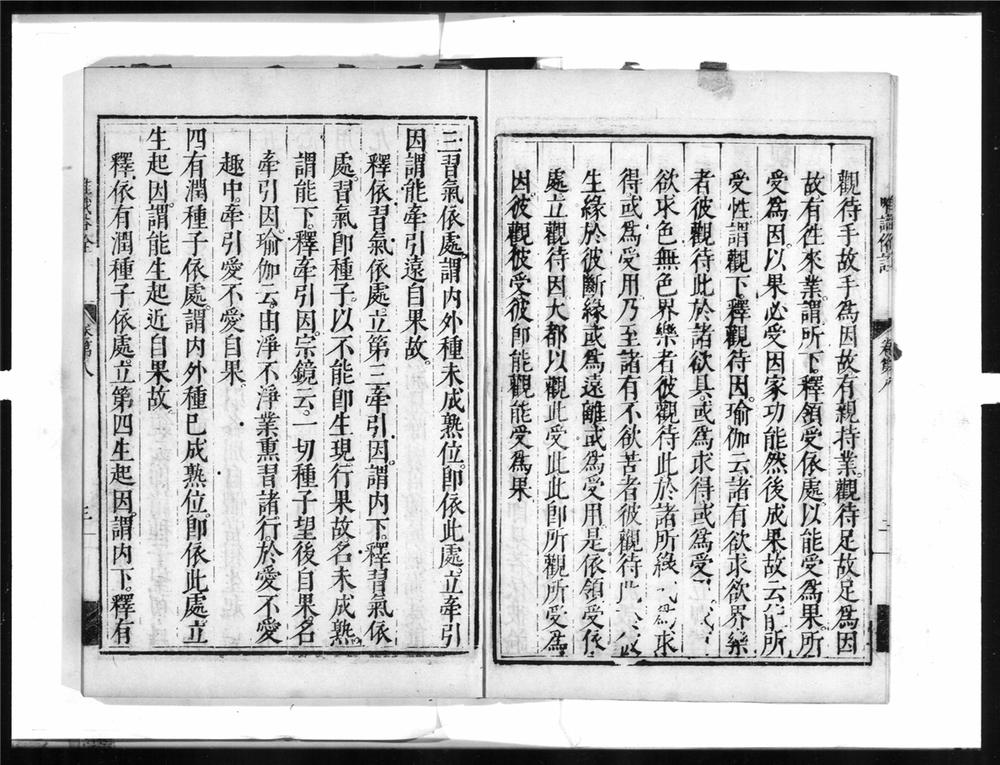 觀待手故手爲因故有親持業觀待足故足爲因
故有徃來業謂所下釋領受依處以能受爲果所
受爲因以果必受因家功能然後成果故云能所
受性謂觀下釋觀待因瑜伽云諸有欲求欲界樂
者彼觀待此於諸欲具或爲求得或爲受
欲求色無色界樂者彼觀待此於諸所緣或爲求
得或爲受用乃至諸有不欲苦者彼觀待此
生緣於彼斷緣或爲遠離或爲受用是依領受依
處立觀待因大都以觀此受此此卽所觀所受爲
因彼觀彼受彼卽能觀能受爲果
卷第八
三習氣依處謂內外種未成熟位卽依此處立牽引
因謂能牽引遠自果故
釋依習氣依處立第三牽引因謂內下釋習氣依
處習氣卽種子以不能卽生現行果故名未成熟
謂能下釋牽引因宗鏡云一切種子望後自果名
牽引因瑜伽云由淨不淨業熏習諸行於愛不愛
趣中牽引愛不愛自果
四有潤種子依處謂內外種已成熟位卽依此處立
生起因謂能生起近自果故
釋依有潤種子依處立第四生起因謂內下釋有
卷第八
三